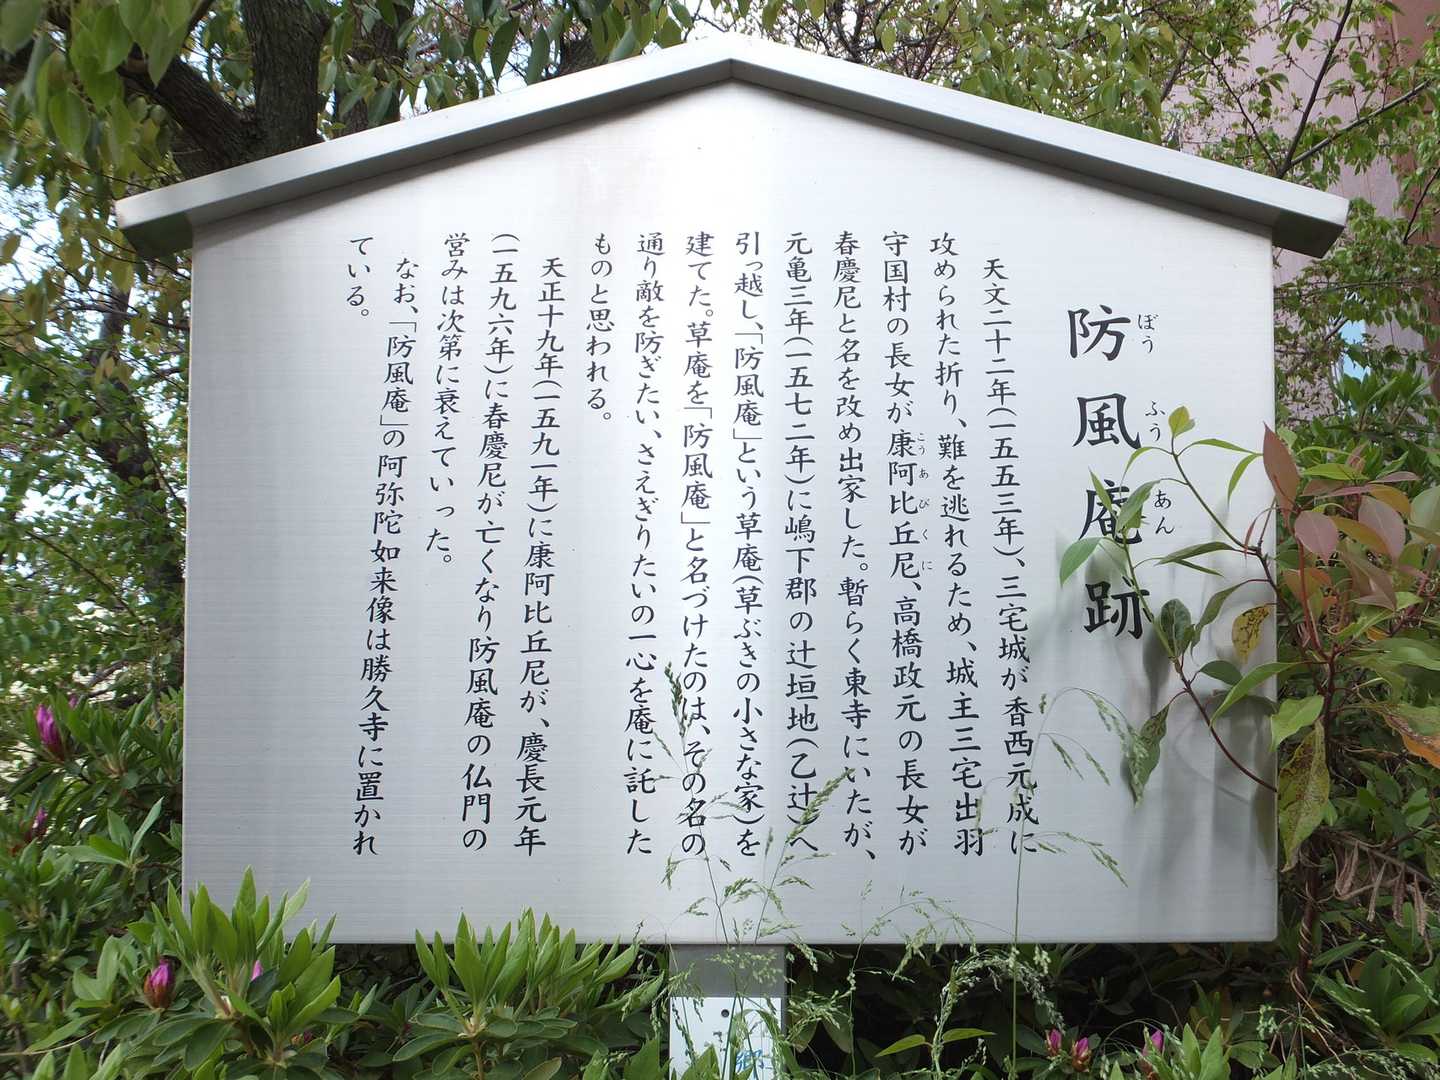 防風庵跡
ぼうふうあん
天文二十二年(一五五三年)、三宅城が香西元成に
攻められた折り、難を逃れるため、城主三宅出羽
守国村の長女が康阿比丘尼、高橋政元の長女が
こうあびくに
春慶尼と名を改め出家した。暫らく東寺にいたが、
元亀三年(一五七二年)に嶋下郡の辻垣地(乙辻)へ
引っ越し、「防風庵」という草庵(草ぶきの小さな家)を
建てた。草庵を「防風庵」と名づけたのは、その名の
通り敵を防ぎたい、さえぎりたいの一心を庵に託した
ものと思われる。
天正十九年(一五九一年)に康阿比丘尼が、慶長元年
(一五九六年)に春慶尼が亡くなり防風庵の仏門の
営みは次第に衰えていった。
なお、「防風庵」の阿弥陀如来像は勝久寺に置かれ
ている。
郷